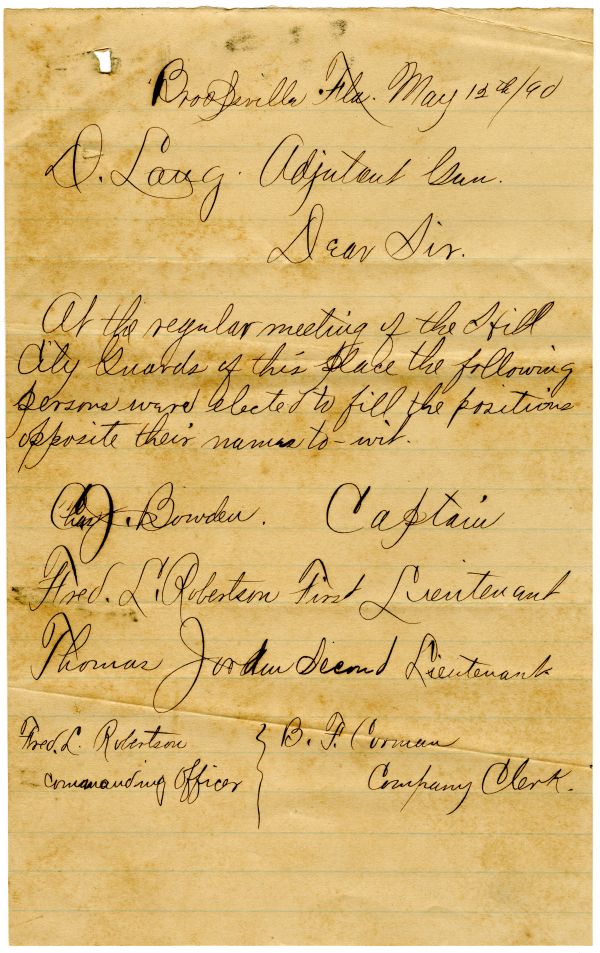 Brooksville Fla. May 12th/90
D. Lang. Adjutant Gen.
Dear Sir.
At the regular meeting of the Hill
City Guards of this place the following
persons were elected to fill the positions
opposite their names to-wit.
J. Bowden. Captain
Fred. L. Robertson First Lieutenant
Thomas Jordan Second Lieutenant
Fred. L. Robertson } B. F. Corman
commanding Officer Company Clerk.